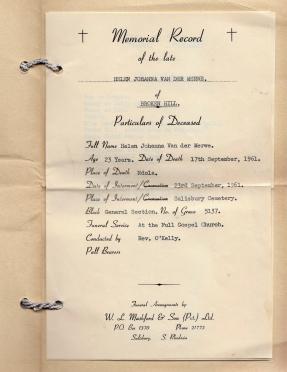 Memorial Record
of the late
HELEN JOHANNA VAN DER MERWE.
of
BROKEN HILL.
Particulars of Deceased
Full Name Helen Johanna Van der Merwe.
Age 23 Years. Date of Death 17th September, 1961.
Place of Death Ndola.
Date of Interment/Cremation 23rd September, 1961.
Place of Interment/Cremation Salisbury Cemetery.
Block General Section. No. of Grave 5137.
Funeral Service At the Full Gospel Church.
Conducted by Rev. O'Kelly.
Pall Bearers
Funeral Arrangements by
W. L. Mashford & Son (Pvt.) Ltd.
P.O. Box 1370 Phone 21773
Salisbury, S. Rhodesia